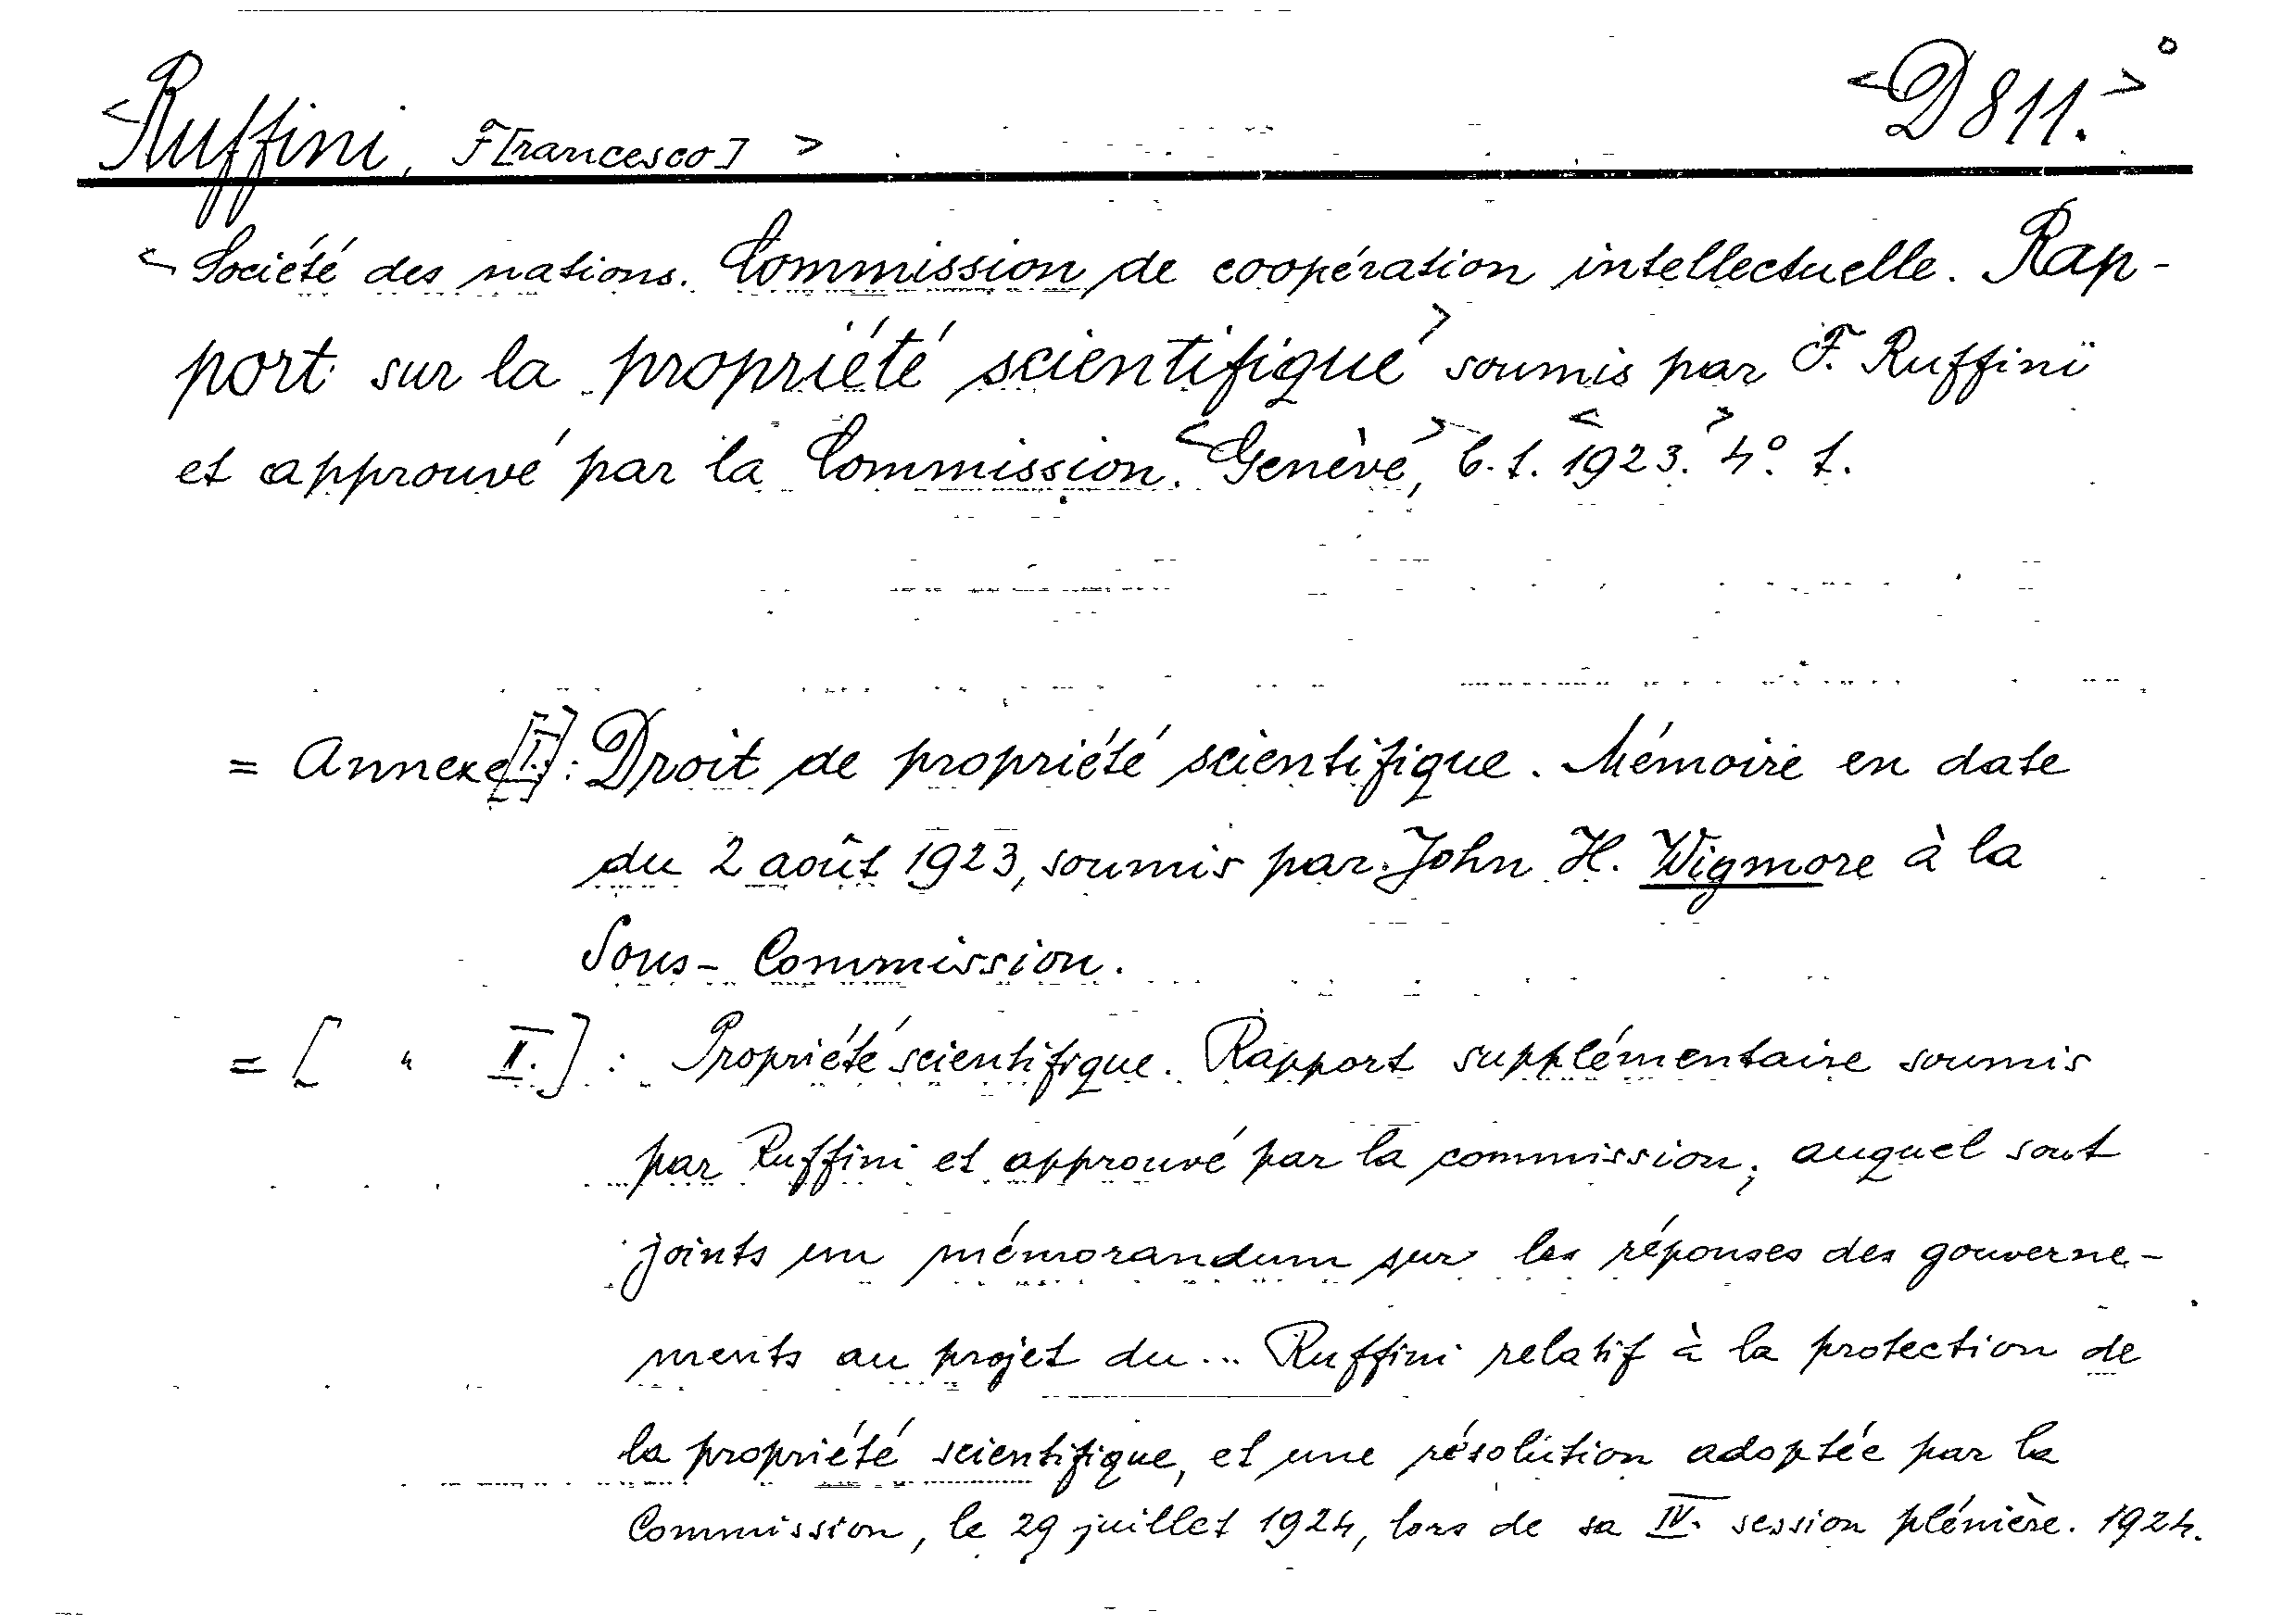 <Ruffini, F[rancesco]> <D 811.>°
<Société des nations. Commission de coopération intellectuelle. Rap-
port sur la propriété scientifique> soumis par F. Ruffini
et approuvé par la Commission. <Genève,> <1923.> 4°. f.
= Annexe [I.]: Droit de propriété scientifique. Mémoire en date
du 2 août 1923, soumis par John H. Wigmore à la
Sous-Commission.
= [ " II.] : Propriété scientifique. Rapport supplémentaire soumis
par Ruffini et approuvé par la commission, auquel sont
joints un mémorandum sur les réponses des gouverne-
ments au projet du ... Ruffini relatif à la protection de
la propriété scientifique, et une résolution adoptée par la
Commission, le 29 juillet 1924, lors de sa IV. session plénière. 1924.